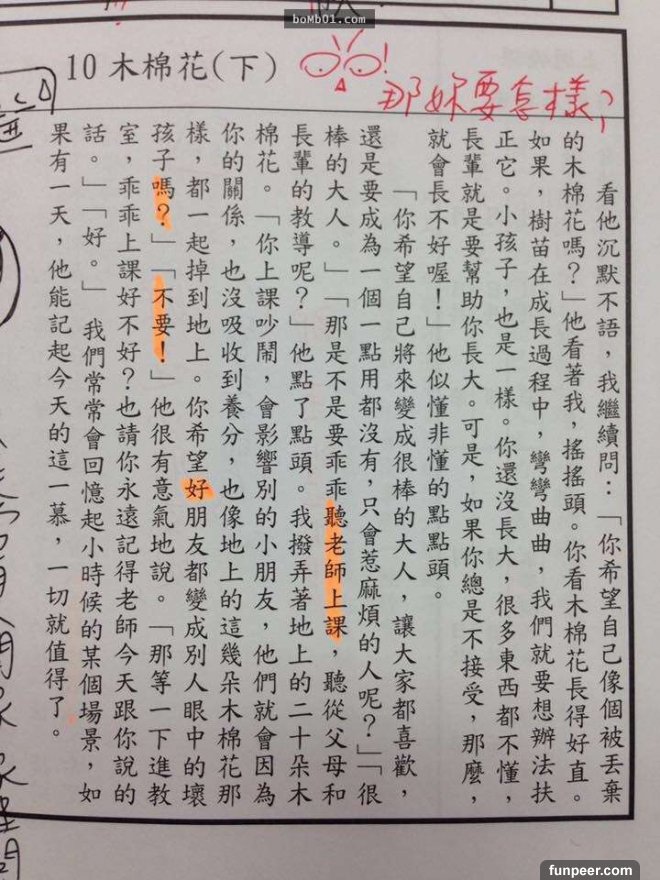 boMb01.com
10 木棉花(下)
那妳要怎樣?
看他沉默不語,我繼續問:「你希望自己像個被丟棄
的木棉花嗎?」他看著我,搖搖頭。你看木棉花長得好直。
如果,樹苗在成長過程中,彎彎曲曲,我們就要想辦法扶
正它。小孩子,也是一樣。你還沒長大,很多東西都不懂,
長輩就是要幫助你長大。可是,如果你總是不接受,那麼,
就會長不好喔!」他似懂非懂的點點頭。
「你希望自己將來變成很棒的大人,讓大家都喜歡,
還是要成為一個一點用都沒有,只會惹麻煩的人呢?」「很
棒的大人。」「那是不是要乖乖聽老師上課,聽從父母和
長輩的教導呢?」他點了點頭。我撥弄著地上的二十朵木
棉花。「你上課吵鬧,會影響別的小朋友,他們就會因為
你的關係,也沒吸收到養分,也像地上的這幾朵木棉花那
樣,都一起掉到地上。你希望好朋友都變成別人眼中的壞
孩子嗎?」「不要!」他很有意氣地說。「那等一下進教
室,乖乖上課好不好?也請你永遠記得老師今天跟你說的
話。」「好。」 我們常常會回憶起小時候的某個場景,如
果有一天,他能記起今天的這一幕,一切就值得了。
funpeer.com